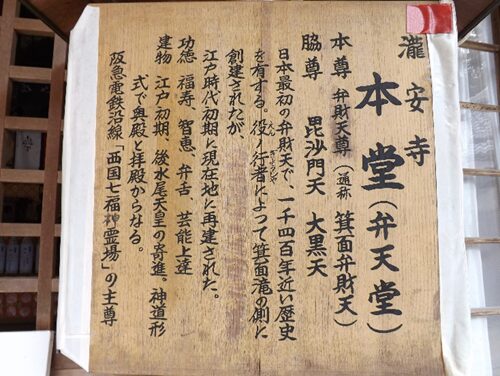 瀧安寺
本堂(弁天堂)
本尊 弁財天尊(通称 箕面弁財天)
脇尊 毘沙門天 大黒天
日本最初の弁財天で、一千四百年近い歴史
を有する。役ノ行者によって箕面滝の側に
創建されたが、
江戸時代初期に現在地に再建された。
功徳 福寿 智恵、弁舌、芸能上達
建物 江戸初期、後水尾天皇の寄進。神道形
式で奥殿と拝殿からなる。
阪急電鉄沿線「西国七福神霊場」の主尊